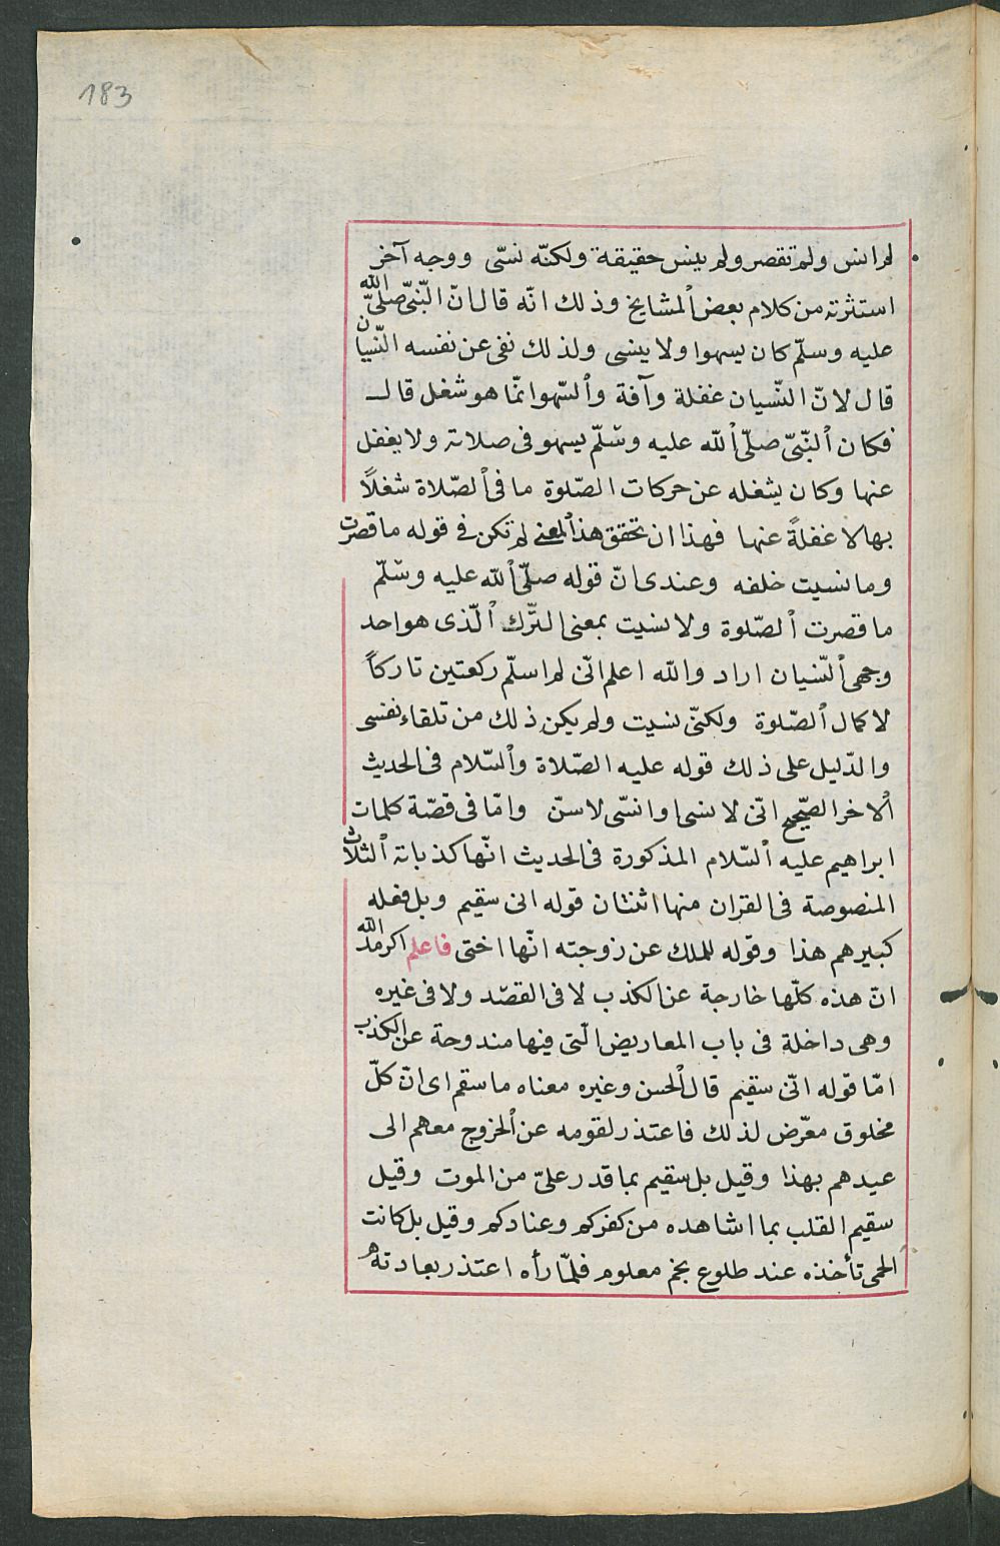 183
لم انس ولم تقصر ولم ينس حقيقة ولكنّه نسّى ووجه آخر
استثرته من كلام بعض المشايخ وذلك انّه قال انّ النّبىّ صلىّ الله
عليه وسلّم كان يسهوا ولا ينسى ولذلك نفى عن نفسه النّسيان
قال لانّ النّسيان غفلة وآفة والسّهو انّما هو شغل قال
فكان النّبىّ صلّى الله عليه وسّلّم يسهو فى صلاته ولا يغفل
عنها وكان يشغله عن حركات الصّلوة ما فى الصّلاة شغلاً
بها لا غفلةً عنها فهذا ان تحقق هذ المعنى لم تكن فى قوله ما قصرت
وما نسيت خلفه وعندى انّ قوله صلّى الله عليه وسّلّم
ما قصرت الصّلوة ولا نسيت بمعنى الترّك الّذى هو احد
وجهى النّسيان اراد والله اعلم انّى لم اسلّم ركعتين تاركاً
لاكمال الصّلوة ولكنّى نسيت ولم يكن ذلك من تلقاء نفسى
والدّليل على ذلك قوله عليه الصّلاة والسّلام فى الحديث
الاخر الصّحيح انّى لا نسى او انسّى لاسنّ وامّا فى قصّة كلمات
ابراهيم عليه السّلام المذكورة فى الحديث انّها كذباته الثلاث
المنصوصة فى القران منها اثنتان قوله انى سقيم وبل فعله
كبيرهم هذا وقوله للملك عن زوجته انّها اختى فاعلم اكرمك الله
انّ هذه كلّها خارجة عن الكذب لا فى القصد ولا فى غيره
وهى داخلة فى باب المعاريض الّتى فيها مندوحة عن الكذب
امّا قوله انّى سقيم قال الحسن وغيره معناه ما سقم اى انّ كلّ
مخلوق معرّض لذلك فاعتذر لقومه عن الخروج معهم الى
عيدهم بهذا وقيل بل سقيم بما قدر علىّ من الموت وقيل
سقيم القلب بما اشاهده من كفركم وعنادكم وقيل بل كانت
الحمى تأخذه عند طلوع نجم معلوم فلمّا رأه اعتذر بعادته